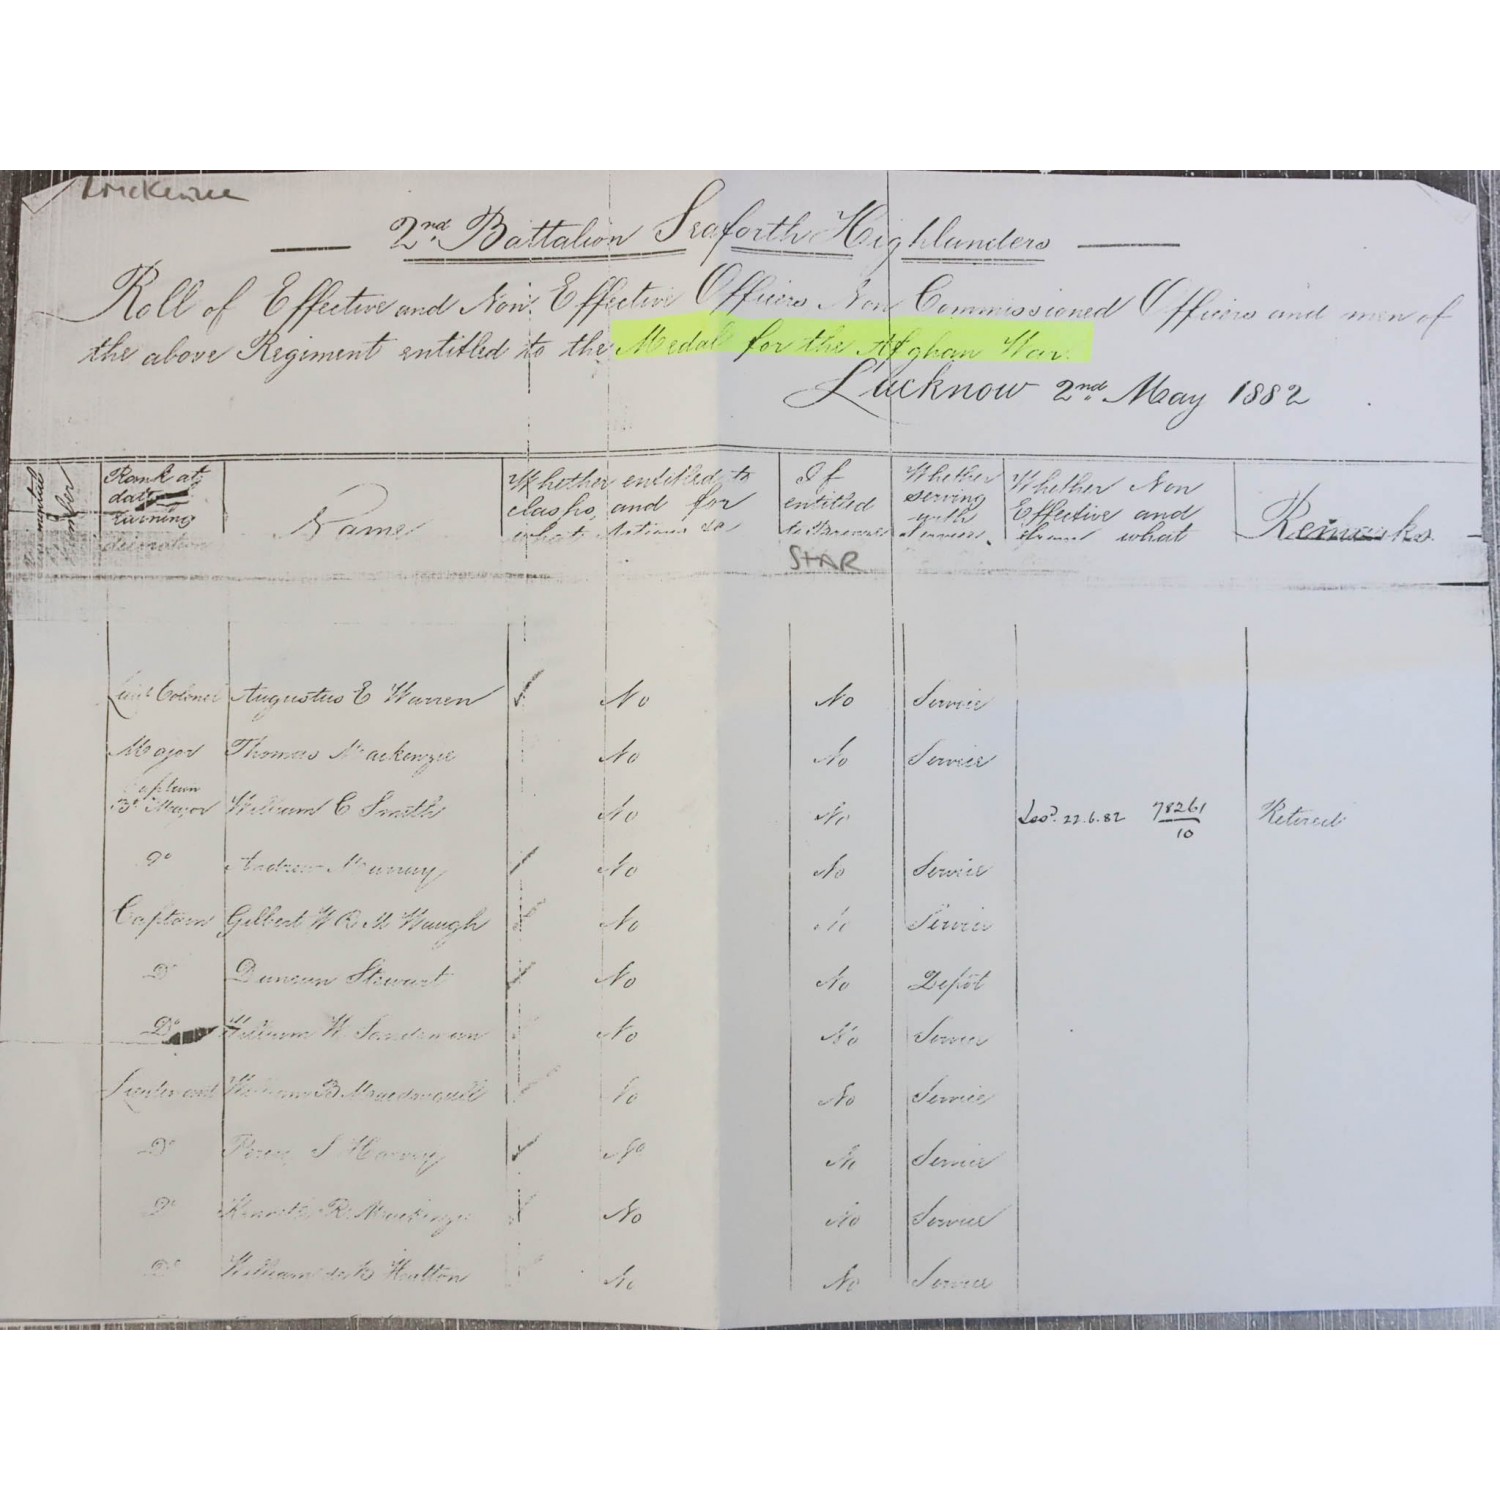 McKenzie
2nd Battalion Seaforth Highlanders
Roll of Effective and Non Effective Officers Non Commissioned Officers and men of
the above Regiment entitled to the Medal for the Afghan War.
Lucknow 2nd May 1882
Number
Rank at date earning decoration
Name
Whether entitled to clasps, and for what Actions &c
If entitled to Bronze STAR
Whether serving with Service.
Whether Non Effective and from what
Remarks
Lieut Colonel Augustus E Warren No No Service
Major Thomas Mackenzie No No Service
Captain
Bt Major William C Smith No No 22.6.82 78261/10 Retired
Do Andrew Murray No No Service
Captain Gilbert W R M Waugh No No Service
Do Duncan Stewart No No Depôt
Do William W Sandeman No No Service
Lieutenant William B No No Service
Do S Harvey No No Service
Do Kenneth R Mackenzie No No Service
Do William Hulton No No Service